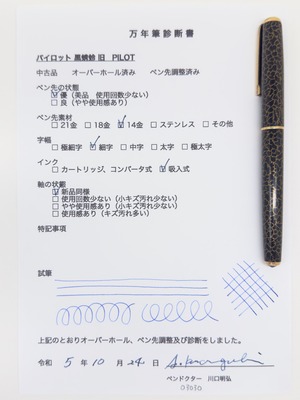 万年筆診断書
パイロット 黒蜻蛉 旧 PILOT
中古品 オーバーホール済み ペン先調整済み
ペン先の状態
☑優（美品 使用回数少ない）
□良（やや使用感あり）
ペン先素材
□21金 □18金 ☑14金 □ステンレス □その他
字幅
□極細字 ☑細字 □中字 □太字 □極太字
インク
□カートリッジ、コンバータ式 ☑吸入式
軸の状態
☑新品同様
□使用回数少ない（小キズ汚れ少ない）
□やや使用感あり（小キズ汚れ少ない）
□使用感あり（キズ汚れ多い）
特記事項
試筆
上記のとおりオーバーホール、ペン先調整及び診断をしました。
令和 5年 10月 24日
ペンドクター 川口明弘